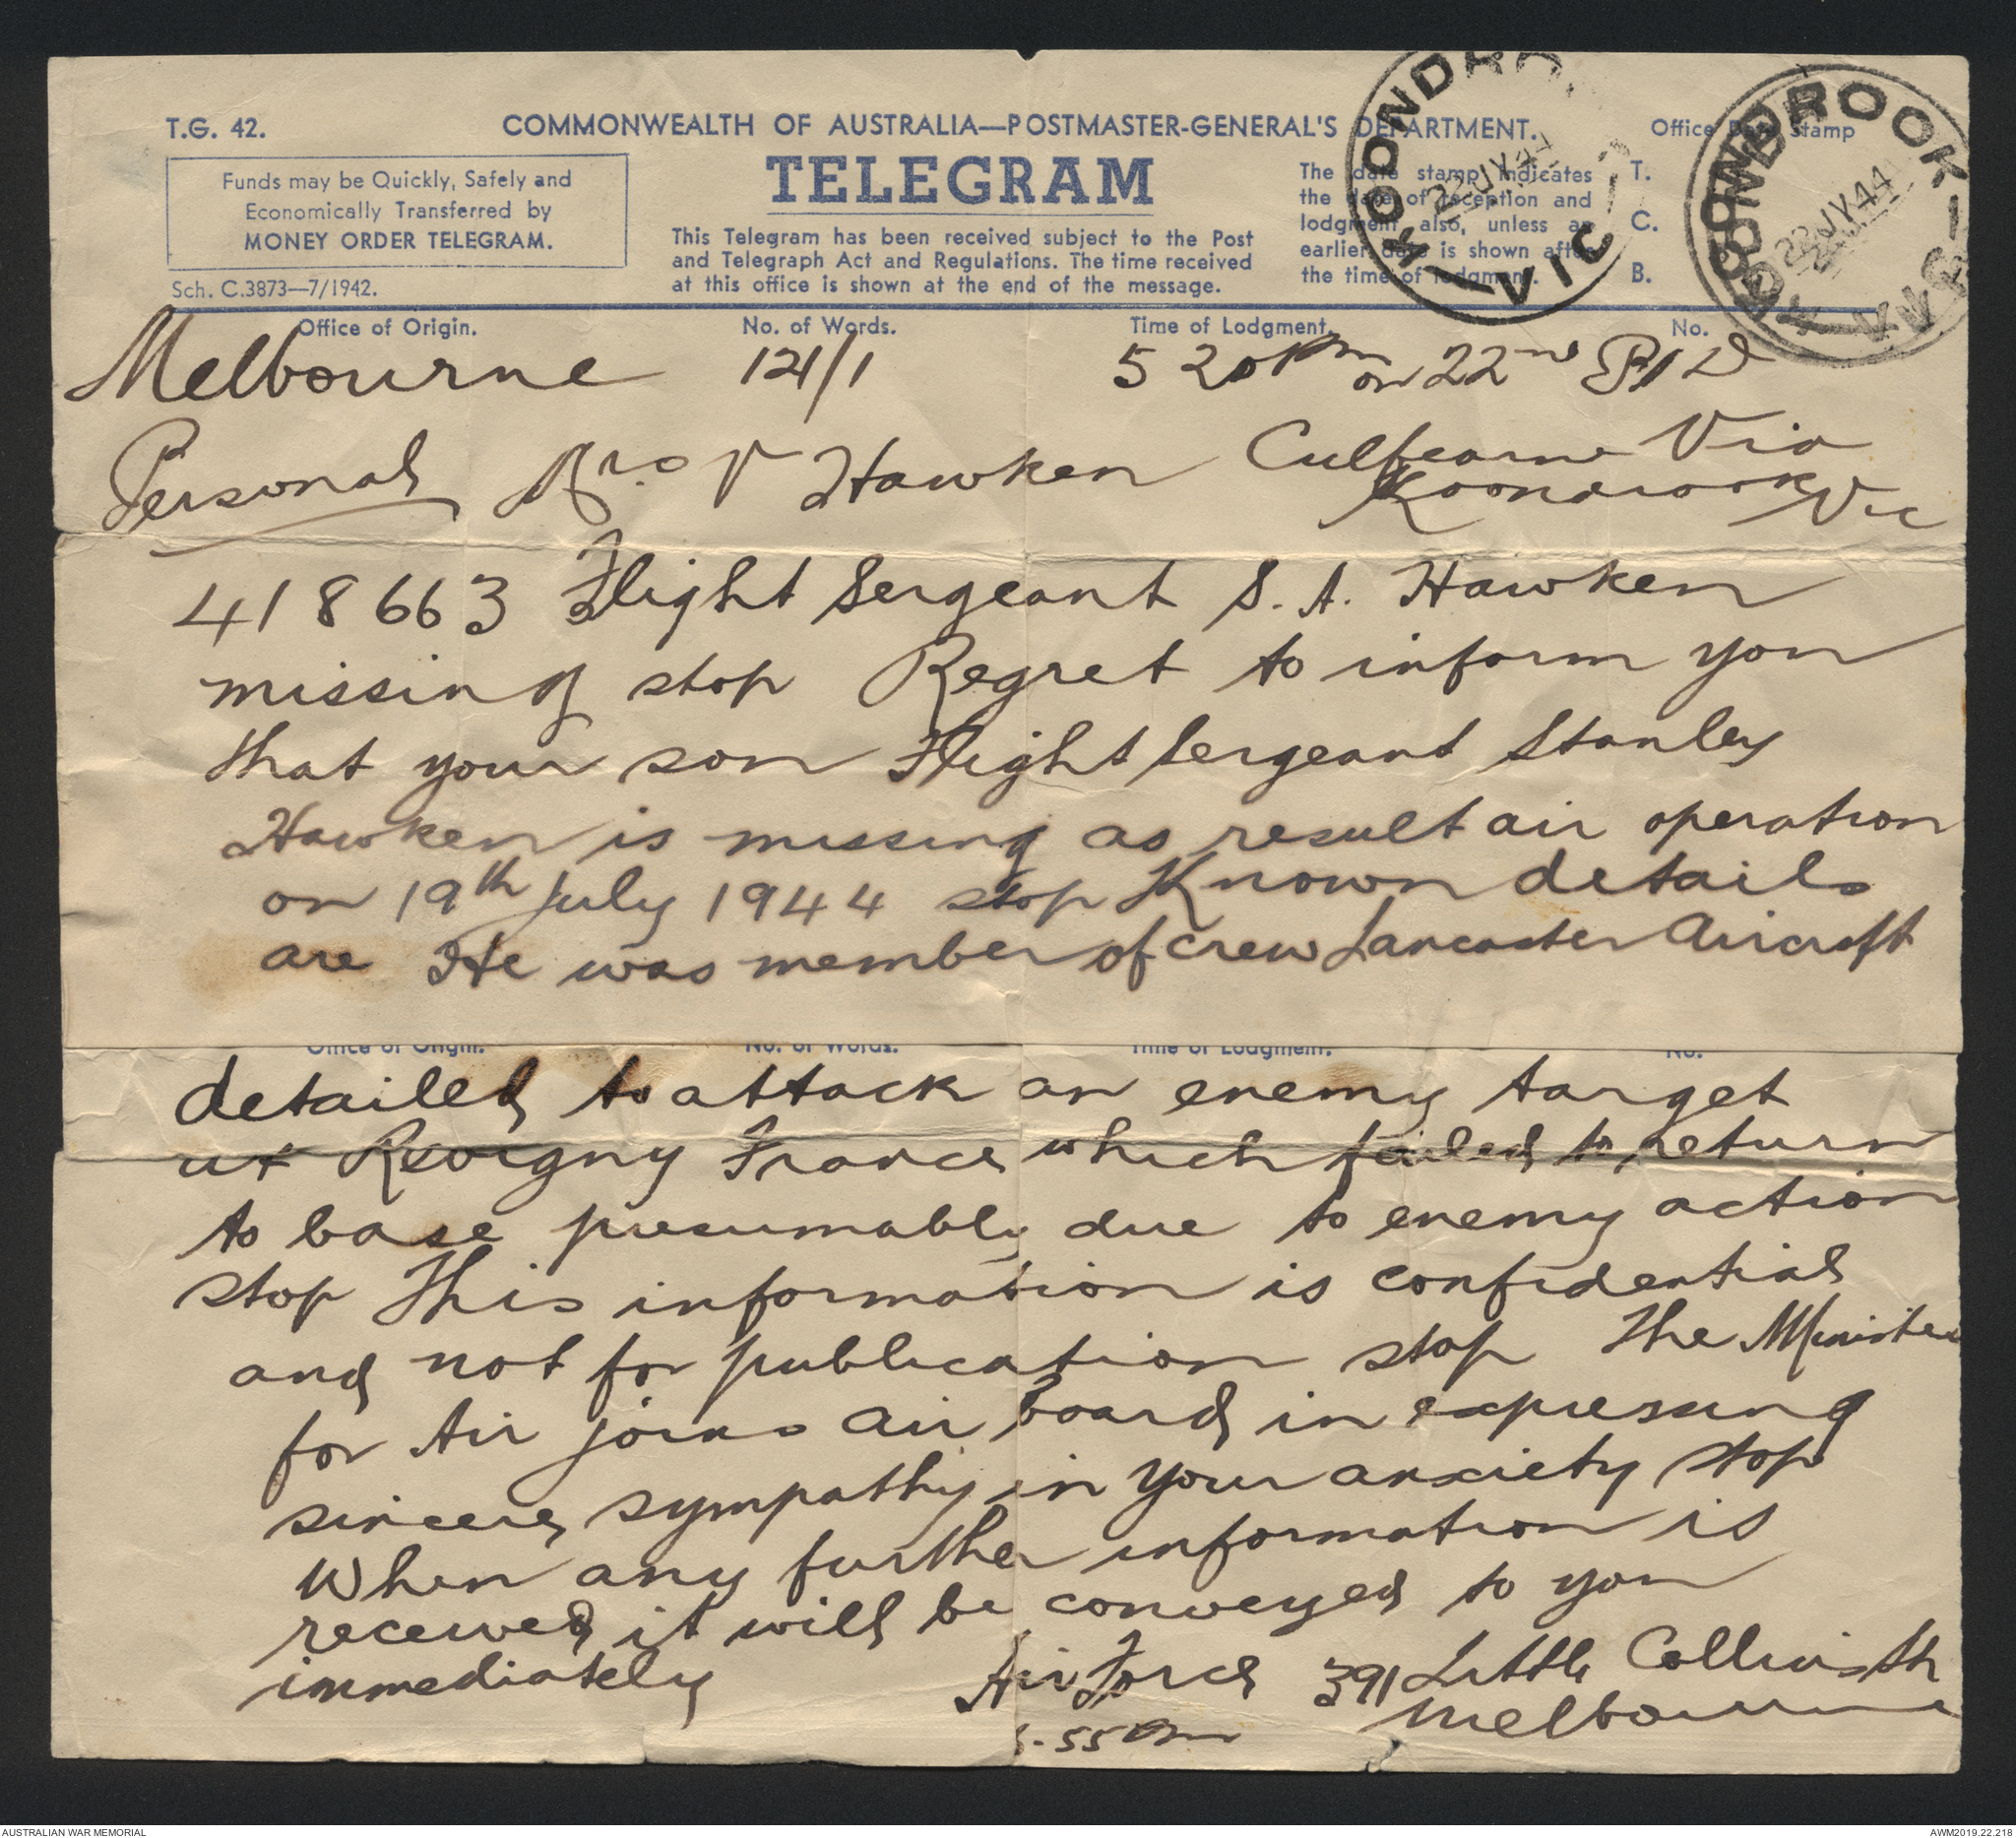 T.G. 42.
COMMONWEALTH OF AUSTRALIA—POSTMASTER-GENERAL'S DEPARTMENT.
Office Date Stamp
Funds may be Quickly, Safely and
Economically Transferred by
MONEY ORDER TELEGRAM.
Sch. C.3873—7/1942.
TELEGRAM
This Telegram has been received subject to the Post
and Telegraph Act and Regulations. The time received
at this office is shown at the end of the message.
The date stamp indicates
the date of reception and
lodgment also, unless an
earlier date is shown after
the time of lodgment.
T.
C.
B.
KOONDROOK
22 JY 44
VIC
KOONDROOK
22 JY 44
VIC
Office of Origin. No. of Words. Time of Lodgment. No.
Melbourne 121/1 5 20 pm on 22nd
Personal Hawken Culfearne Via
Koondrook Vic
418663 Flight Sergeant S. A. Hawken
missing stop Regret to inform you
that your son Flight Sergeant Stanley
Hawken is missing as result air operation
on 19th July 1944 stop Known details
are He was member of crew Lancaster Aircraft
Office of Origin. No. of Words. Time of Lodgment. No.
detailed to attack an enemy target
at Revigny France which failed to return
to base presumably due to enemy action
stop This information is confidential
and not for publication stop The Minister
for Air joins air Board in expressing
sincere sympathy in your anxiety stop
When any further information is
received it will be conveyed to you
immediately Air Force 391 Little Collins St
Melbourne
55 pm
AUSTRALIAN WAR MEMORIAL
AWM2019.22.218